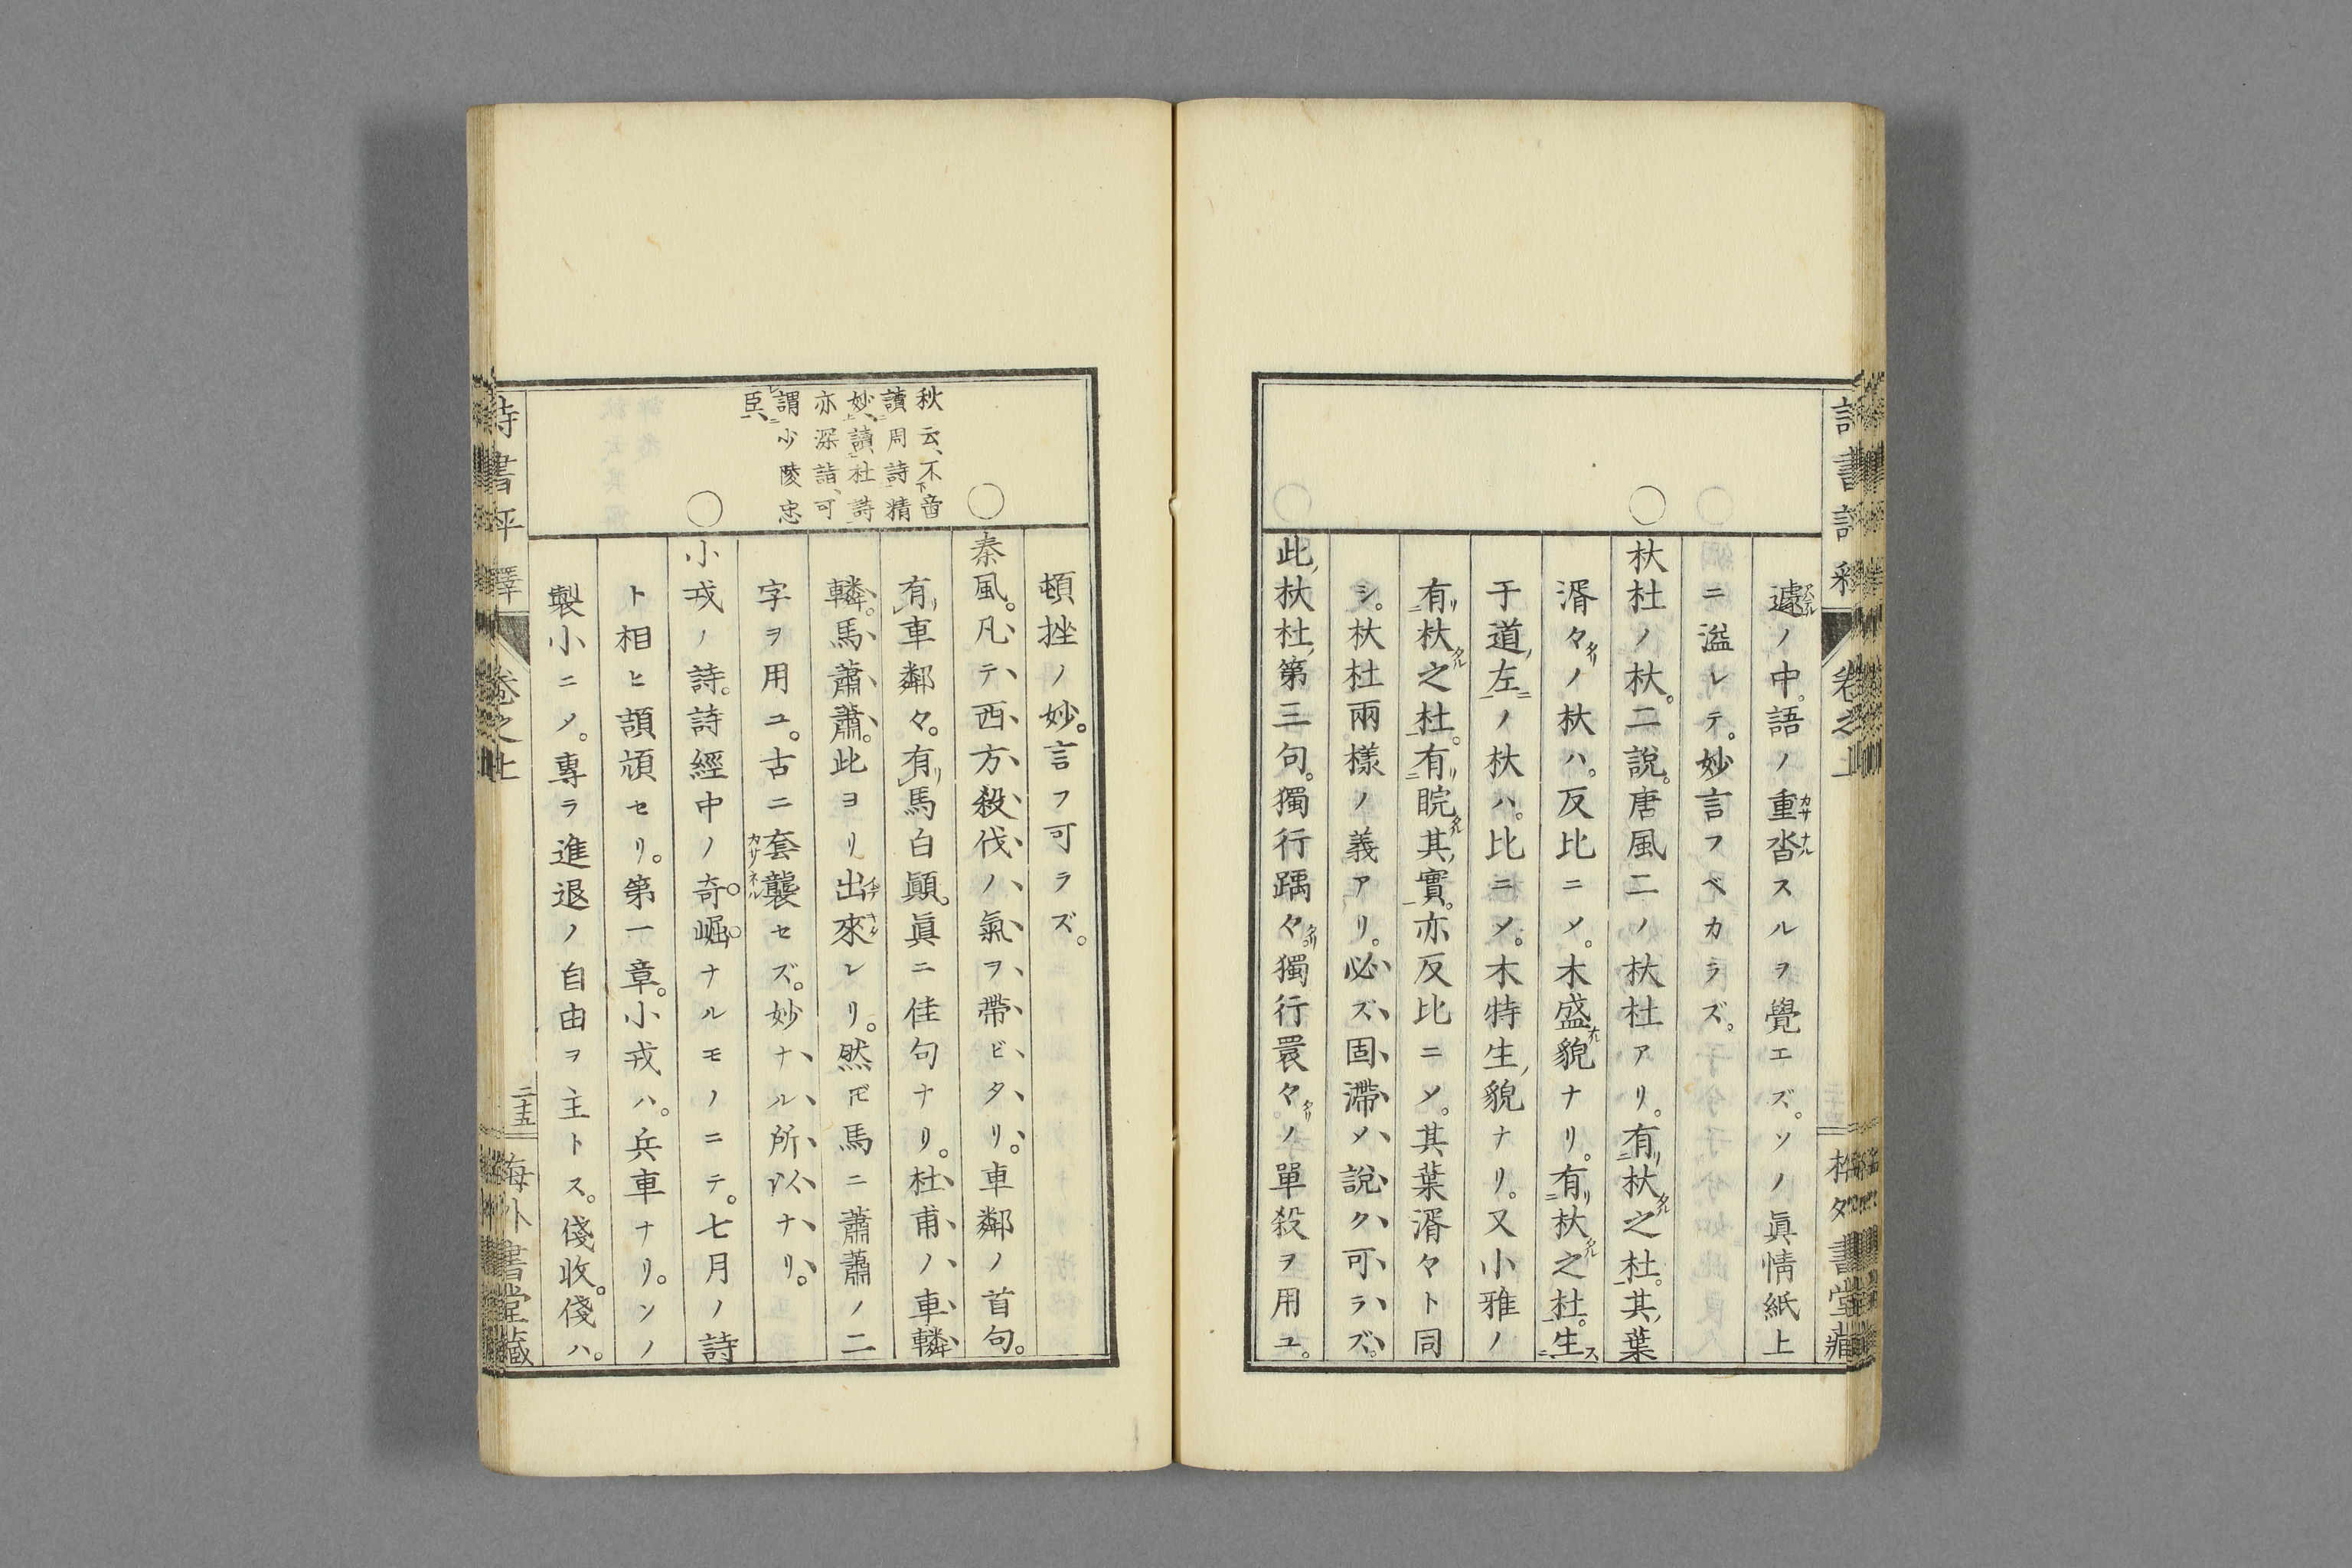 遽ノ中。語ノ重沓スルヲ覺エズ。ソノ眞情紙上
ニ溢レテ。妙言フベカラズ。
杕杜ノ杕。二說。唐風二ノ杕杜アリ。有杕之杜。其葉
湑々ノ杕ハ。反比ニメ。木盛貌ナリ。有杕之杜。生
于道左ノ杕ハ。比ニメ。木特生貌ナリ。又小雅ノ
有杕之杜。有睆其實。亦反比ニメ。其葉湑々ト同
シ。杕杜兩樣ノ義アリ。必ズ固滯メ說ク可ラズ。
此杕杜第三句。獨行踽々。獨行睘々ノ單殺ヲ用ユ。
頓挫ノ妙。言フ可ラズ。
秦風。凡テ西方殺伐ノ氣ヲ帶ビタリ。車鄰ノ首句。
有車鄰々。有馬白顚。眞ニ佳句ナリ。杜甫ノ車轔
轔。馬蕭蕭。此ヨリ出來レリ。然𪜈馬ニ蕭蕭ノ二
字ヲ用ユ。古ニ套襲セズ。妙ナル所以ナリ。
小戎ノ詩。詩經中ノ奇崛ナルモノニテ。七月ノ詩
ト相ヒ頡頏セリ。第一章。小戎ハ。兵車ナリ。ソノ
製小ニメ。專ラ進退ノ自由ヲ主トス。俴收。俴ハ。
秋云、不音
讀周詩精
妙、讀杜詩
亦深詣、可
謂少陵忠
臣、
詩書評釋
卷之上
二十五
海外書堂藏
卷之上